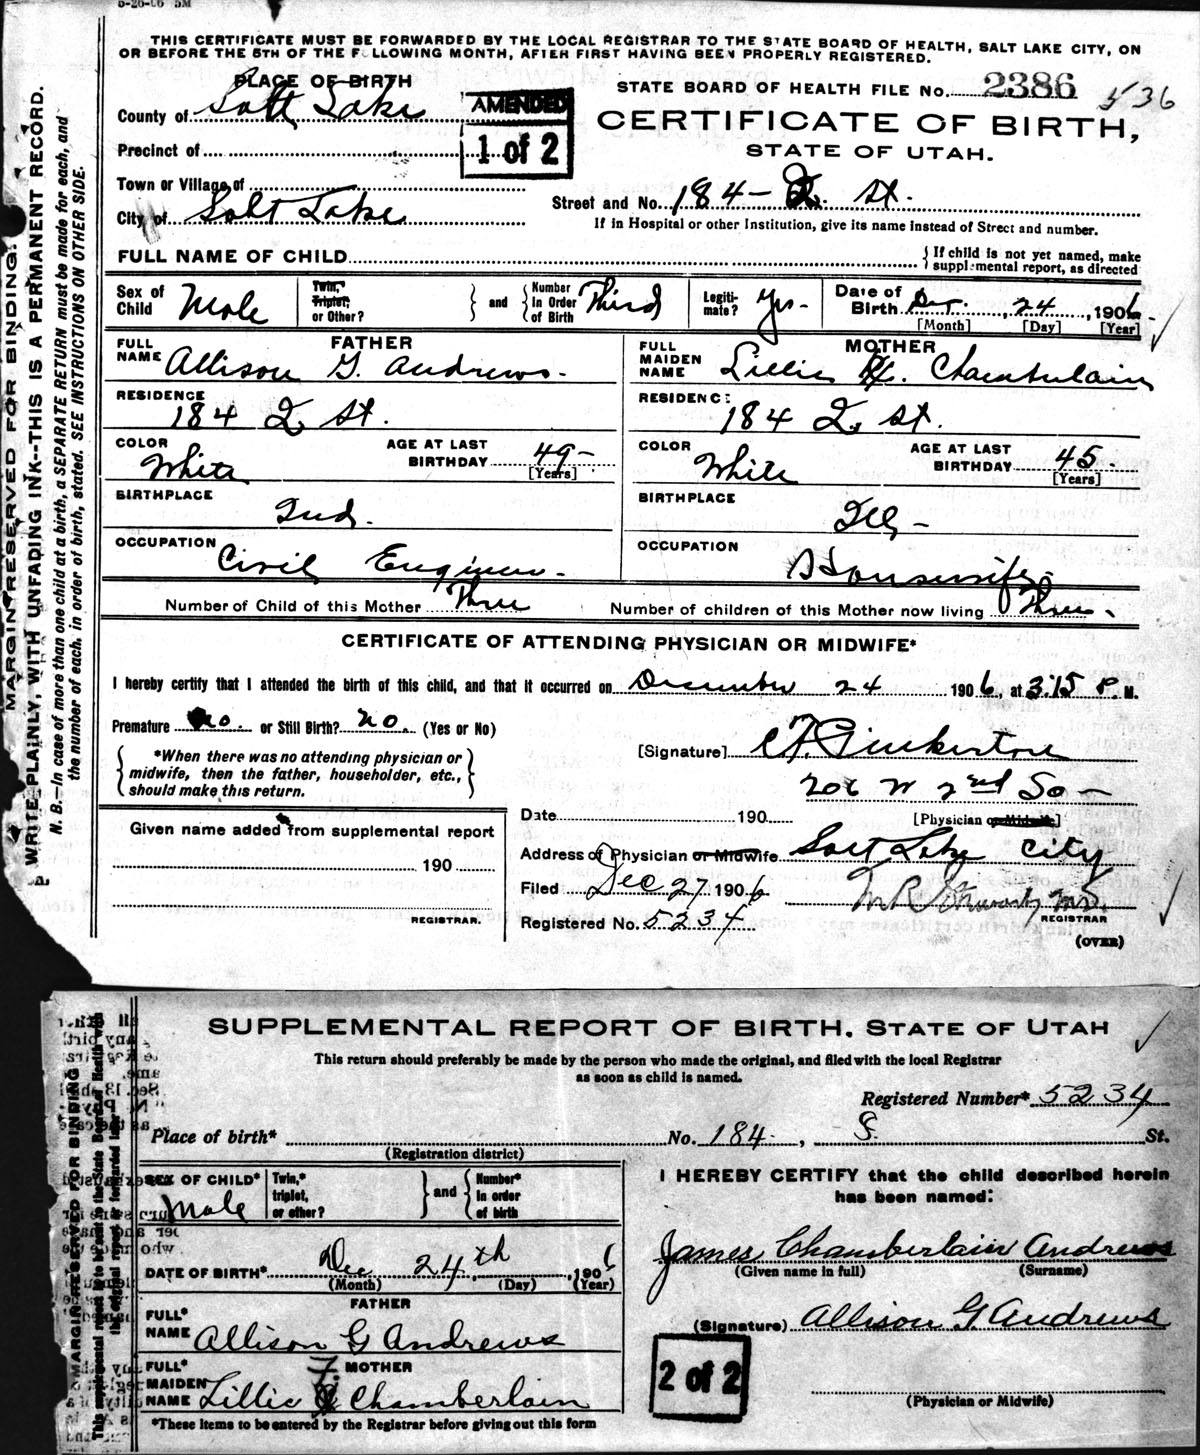 5-26-06 5M
THIS CERTIFICATE MUST BE FORWARDED BY THE LOCAL REGISTRAR TO THE STATE BOARD OF HEALTH, SALT LAKE CITY, ON
OR BEFORE THE 5TH OF THE FOLLOWING MONTH, AFTER FIRST HAVING BEEN PROPERLY REGISTERED.
PLACE OF BIRTH
STATE BOARD OF HEALTH FILE No. 2386 536
County of Salt Lake
AMENDED
1 of 2
CERTIFICATE OF BIRTH,
STATE OF UTAH.
Precinct of
Town or Village of
Street and No. 184 - Q. St.
City of Salt Lake
If in Hospital or other Institution, give its name instead of Street and number.
FULL NAME OF CHILD
If child is not yet named, make
supplemental report, as directed
Sex of Child Male
Twin, Triplet, or Other?
and
Number In Order of Birth Third
Legitimate? Yes-
Date of Birth Dec. 24, 1906
[Month] [Day] [Year]
FATHER
FULL NAME Allison G. Andrews.
MOTHER
FULL MAIDEN NAME Lillie Chamberlain
RESIDENCE 184 Q. St.
RESIDENCE 184 Q. St.
COLOR White
AGE AT LAST BIRTHDAY 49 - [Years]
COLOR White
AGE AT LAST BIRTHDAY 45. [Years]
BIRTHPLACE Ind.
BIRTHPLACE Ill -
OCCUPATION Civil Engineer.
OCCUPATION Housewife.
Number of Child of this Mother Three
Number of children of this Mother now living Three.
CERTIFICATE OF ATTENDING PHYSICIAN OR MIDWIFE*
I hereby certify that I attended the birth of this child, and that it occurred on December 24 1906, at 3:15 P. M.
Premature No. or Still Birth? no. (Yes or No)
*When there was no attending physician or
midwife, then the father, householder, etc.,
should make this return.
[Signature] C.F. Pinkerton
206 W 2nd So -
Date 190
[Physician or Midwife]
Given name added from supplemental report
190
REGISTRAR.
Address of Physician or Midwife Salt Lake City
Filed Dec 27, 1906
M.D.
REGISTRAR
Registered No. 5234
(OVER)
MARGIN RESERVED FOR BINDING.
WRITE PLAINLY, WITH UNFADING INK--THIS IS A PERMANENT RECORD.
N. B.—In case of more than one child at a birth, a SEPARATE RETURN must be made for each, and
the number of each, in order of birth, stated. SEE INSTRUCTIONS ON OTHER SIDE.
SUPPLEMENTAL REPORT OF BIRTH. STATE OF UTAH
This return should preferably be made by the person who made the original, and filed with the local Registrar
as soon as child is named.
Registered Number* 5234
Place of birth* No. 184, St.
(Registration district)
SEX OF CHILD* Male
Twin,* triplet, or other?
and
Number* in order of birth
I HEREBY CERTIFY that the child described herein
has been named:
DATE OF BIRTH* Dec 24th, 1906
(Month) (Day) (Year)
James Chamberlain Andrews
(Given name in full) (Surname)
FATHER
FULL* NAME Allison G Andrews
(Signature) Allison G Andrews
MOTHER
FULL* MAIDEN NAME Lillie F. Chamberlain
2 of 2
(Physician or Midwife)
*These items to be entered by the Registrar before giving out this form
MARGIN RESERVED FOR BINDING